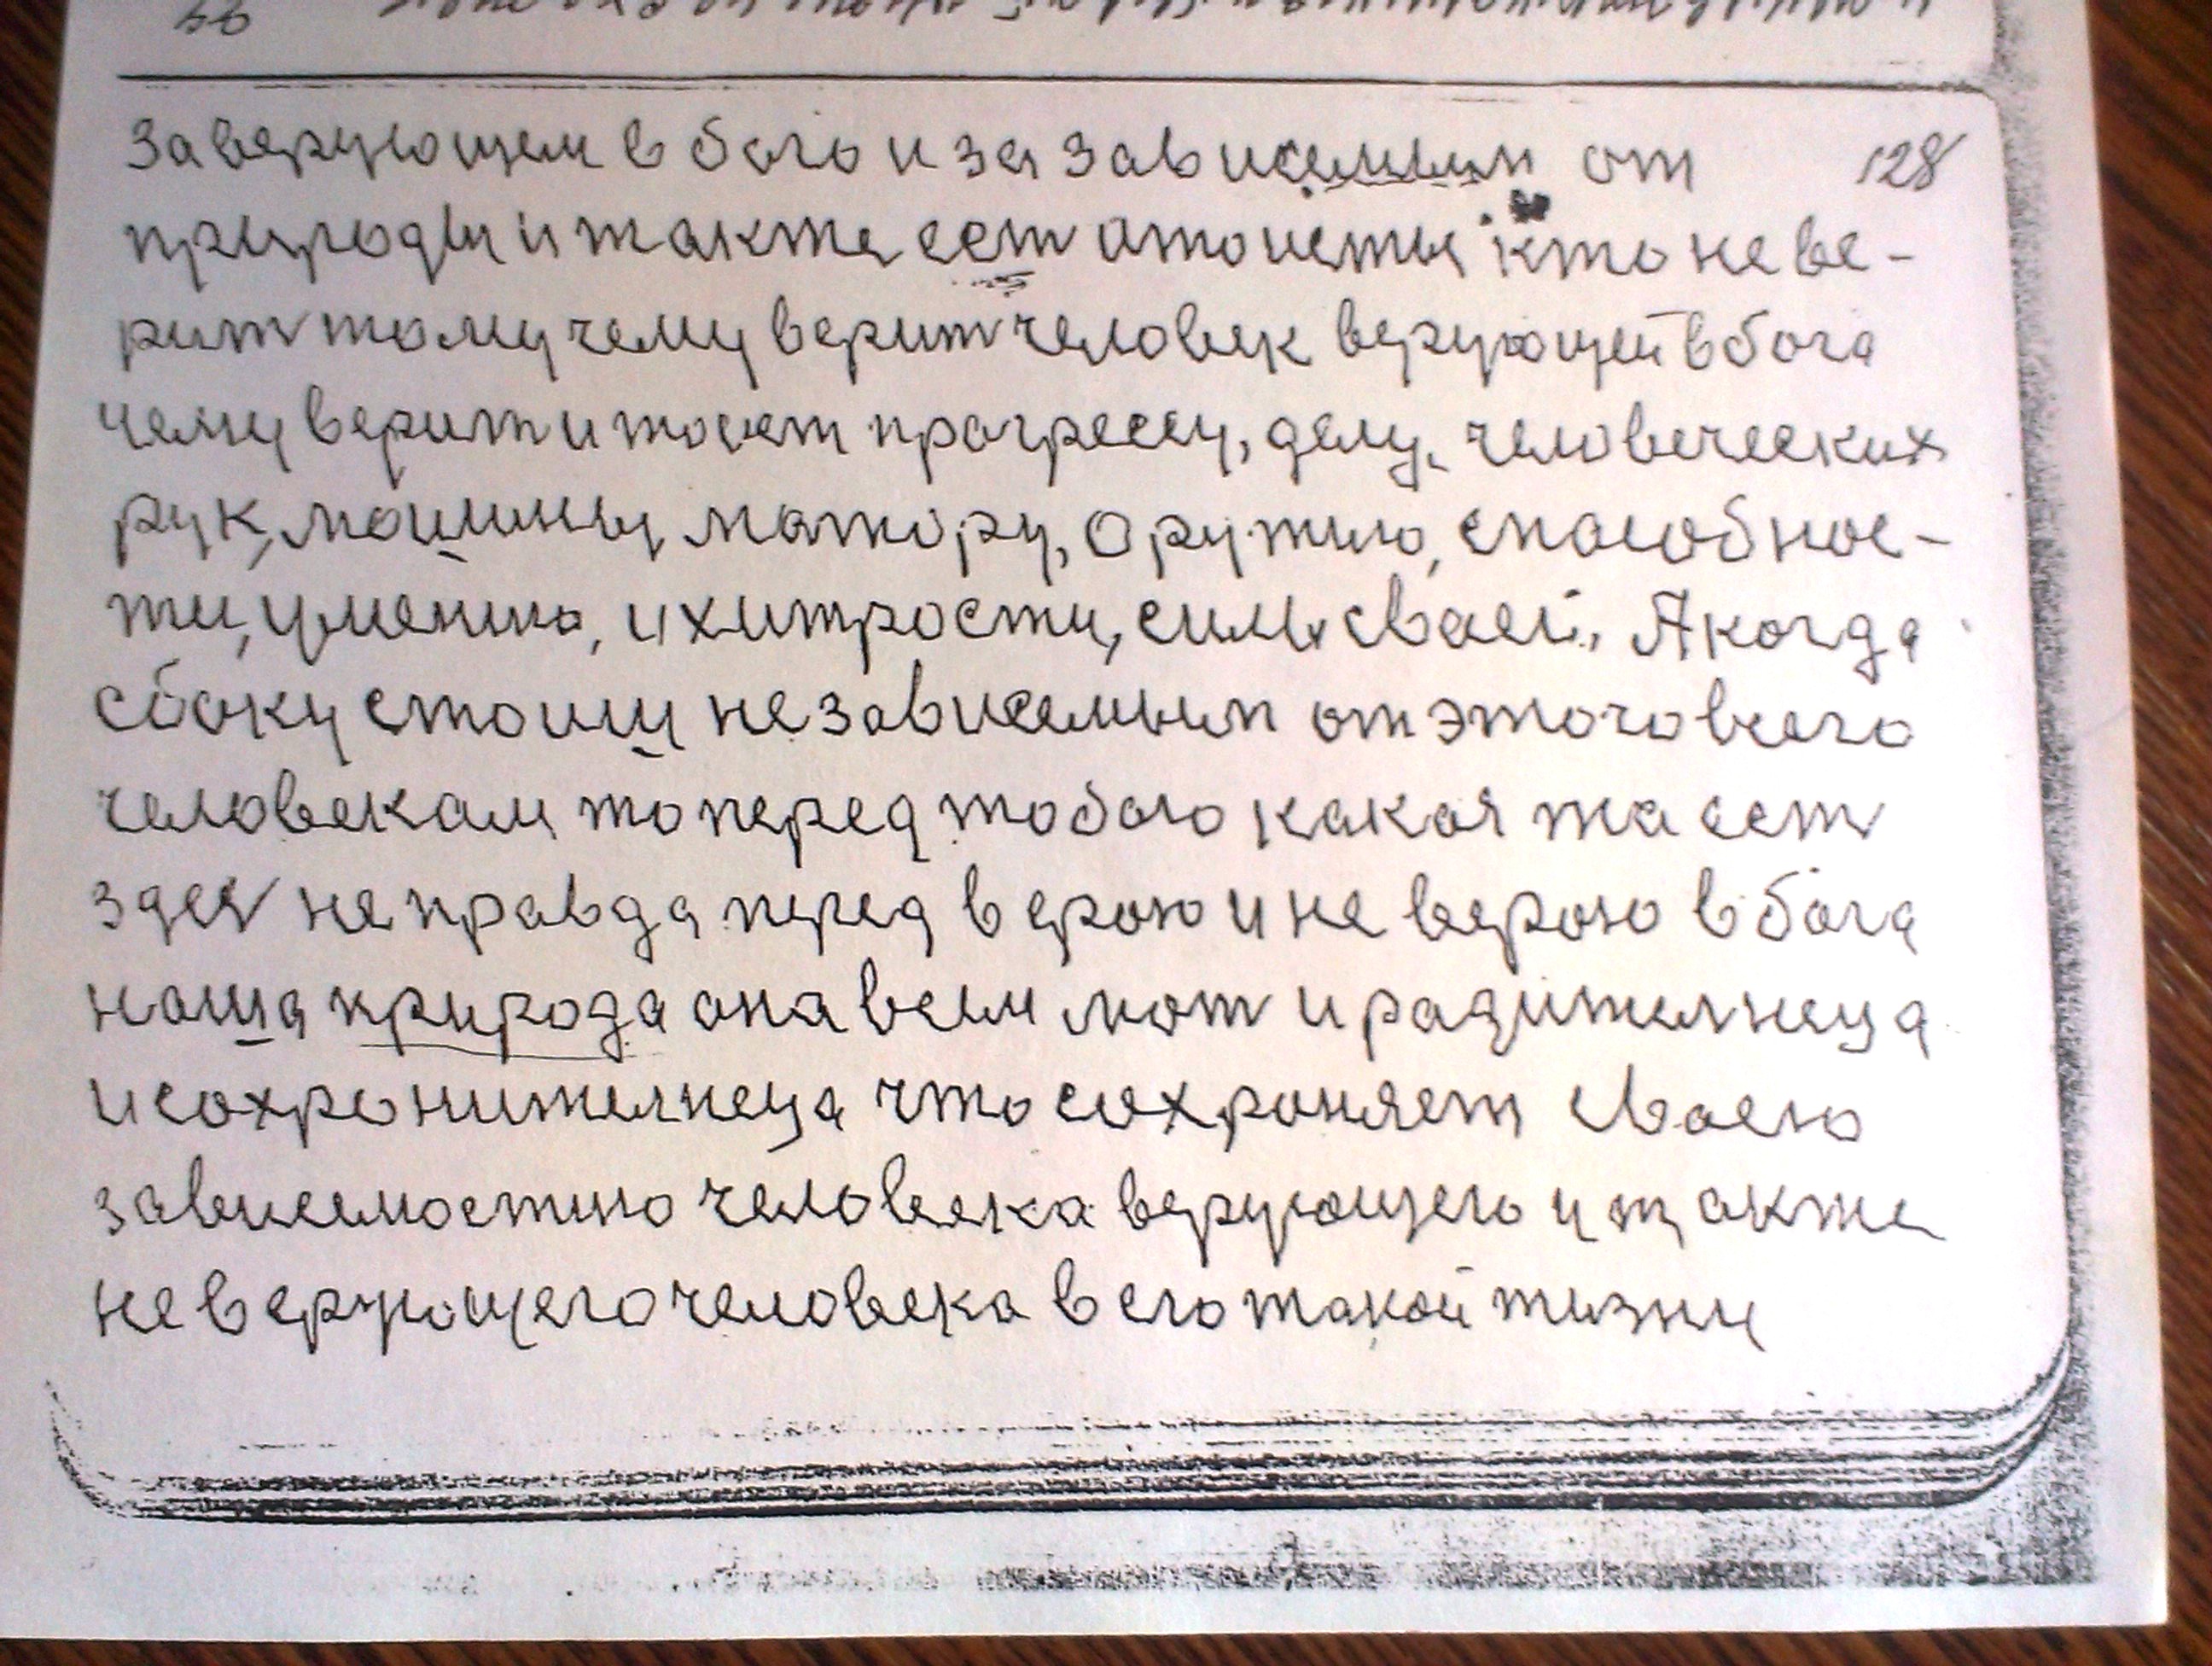 128
за верующем в бого и за зависемым от
природы и также сет атоисты кто не ве-
рит тому чему верит человек верующей в бога
чему верит итоист прогрессу, делу, человеческих
рук, машины, матору, оружию, способнос-
ти, умению, и хитрости, силы сваей, А когда
сбоку стоиш не зависемым от этого всего
человекам то перед тобою какая жа сет
здес не правда перед верою и не верою в бога
наша природа она всем мат и радителнеца
и сохронителнеца что сохроняет сваею
зависемостию человека верующего и также
не верующего человека в его такой жизни